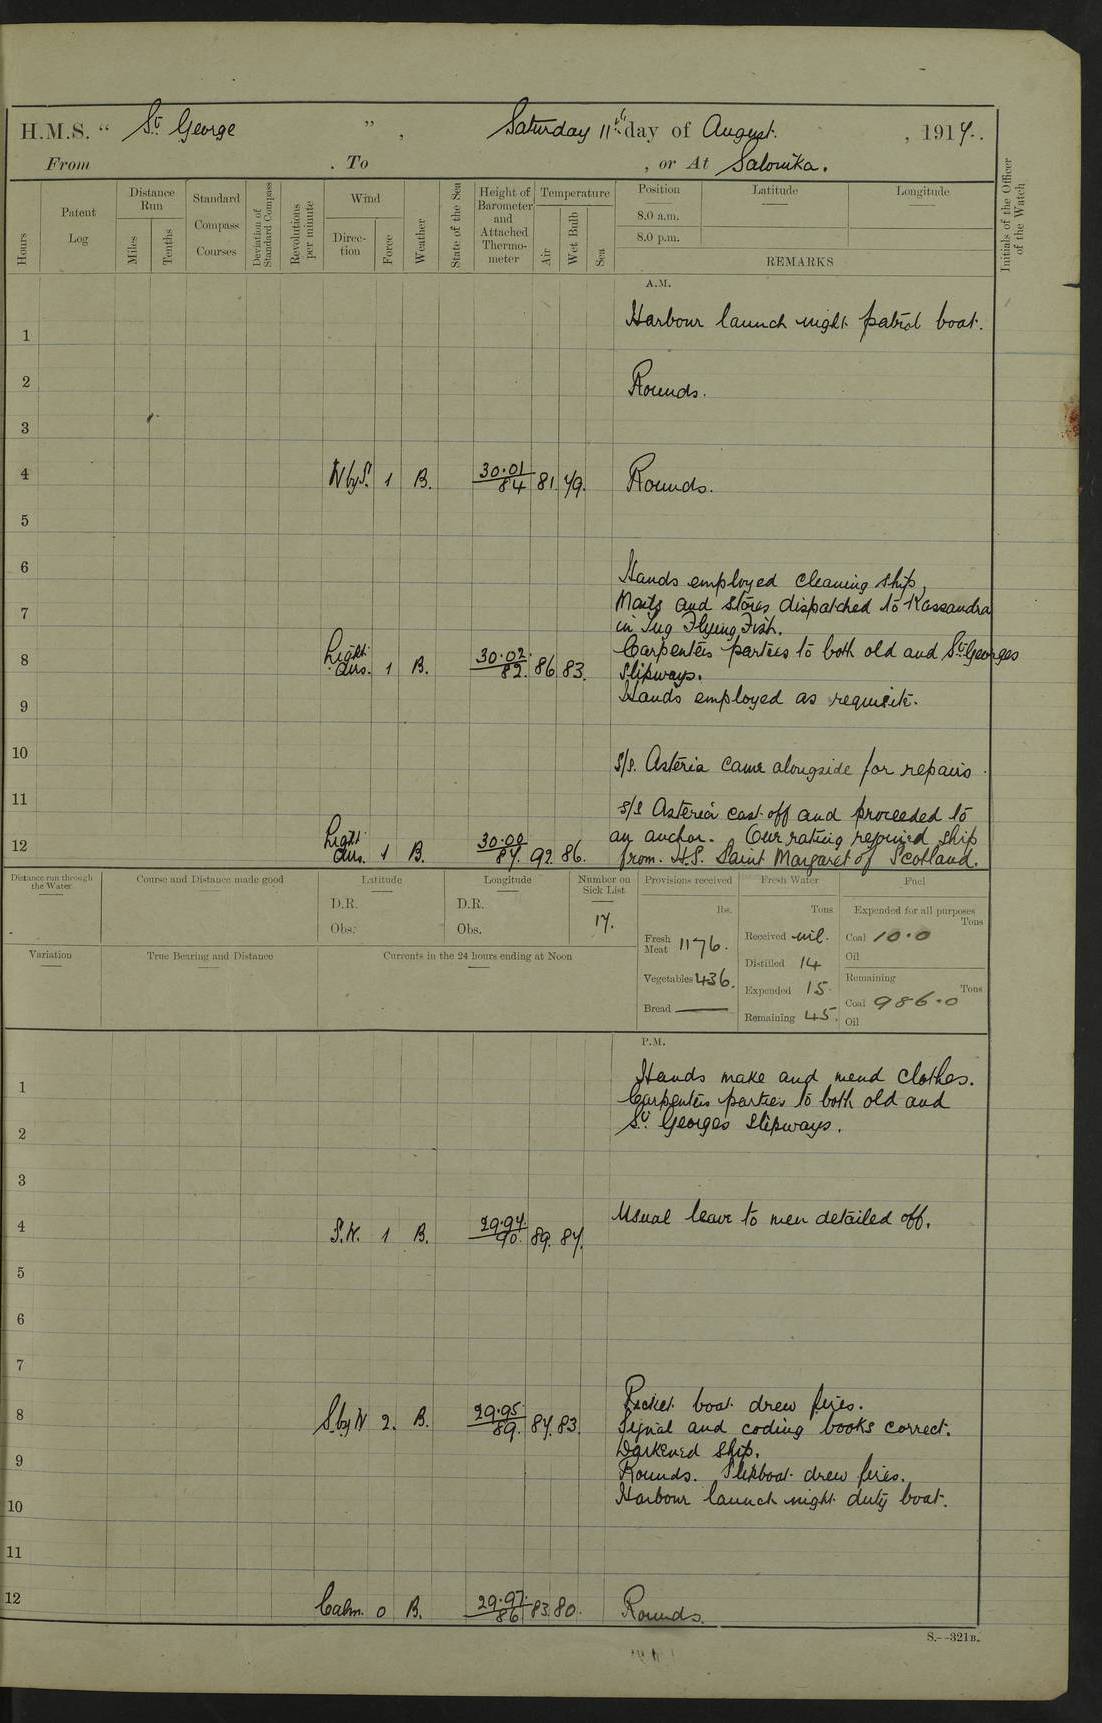 H.M.S. “ St George ” , Saturday 11th day of August. , 1917.
From . To , or At Salonika.
Hours
Patent Log
Distance Run
Miles
Tenths
Standard Compass Courses
Deviation of Standard Compass
Revolutions per minute
Wind
Direction
Force
Weather
State of the Sea
Height of Barometer and Attached Thermometer
Temperature
Air
Wet Bulb
Sea
Position
Latitude
Longitude
8.0 a.m.
8.0 p.m.
REMARKS
Initials of the Officer of the Watch
A.M.
1 Harbour launch night patrol boat.
2 Rounds.
3
4 1 B. 30.01 84 81. 79. Rounds.
5
6 Hands employed cleaning ship,
7 Mails and stores dispatched to Kassandra
in Tug Flying Fish.
8 Light airs. 1 B. 30.02 82. 86 83. Carpenters parties to both old and St Georges
Slipways.
9 Hands employed as requisite.
10 S/S. Asteria came alongside for repairs.
11 S/S Asteria cast off and proceeded to
12 Light airs. 1 B. 30.00 87. 92. 86. an anchor. One rating rejoined ship
from. H.S. Saint Margaret of Scotland.
Distance run through the Water
Course and Distance made good
Latitude
D.R.
Obs.
Longitude
D.R.
Obs.
Number on Sick List
17.
Provisions received
lbs.
Fresh Meat 1176.
Vegetables 436.
Bread —
Fresh Water
Tons
Received nil.
Distilled 14
Expended 15
Remaining 45.
Fuel
Expended for all purposes
Tons
Coal 10.0
Oil
Remaining
Tons
Coal 986.0
Oil
Variation
True Bearing and Distance
Currents in the 24 hours ending at Noon
P.M.
1 Hands make and mend clothes.
Carpenters parties to both old and
2 St Georges Slipways.
3
4 S.W. 1 B. 29.97. 90. 89. 87. Usual leave to men detailed off.
5
6
7
8 S.byW 2. B. 29.95 89. 87. 83. Picket boat drew fires.
Signal and coding books correct.
9 Darkened ship.
Rounds. Slipboat drew fires.
10 Harbour launch night duty boat.
11
12 Calm. 0 B. 29.97. 86 83. 80. Rounds.
S.--321B.